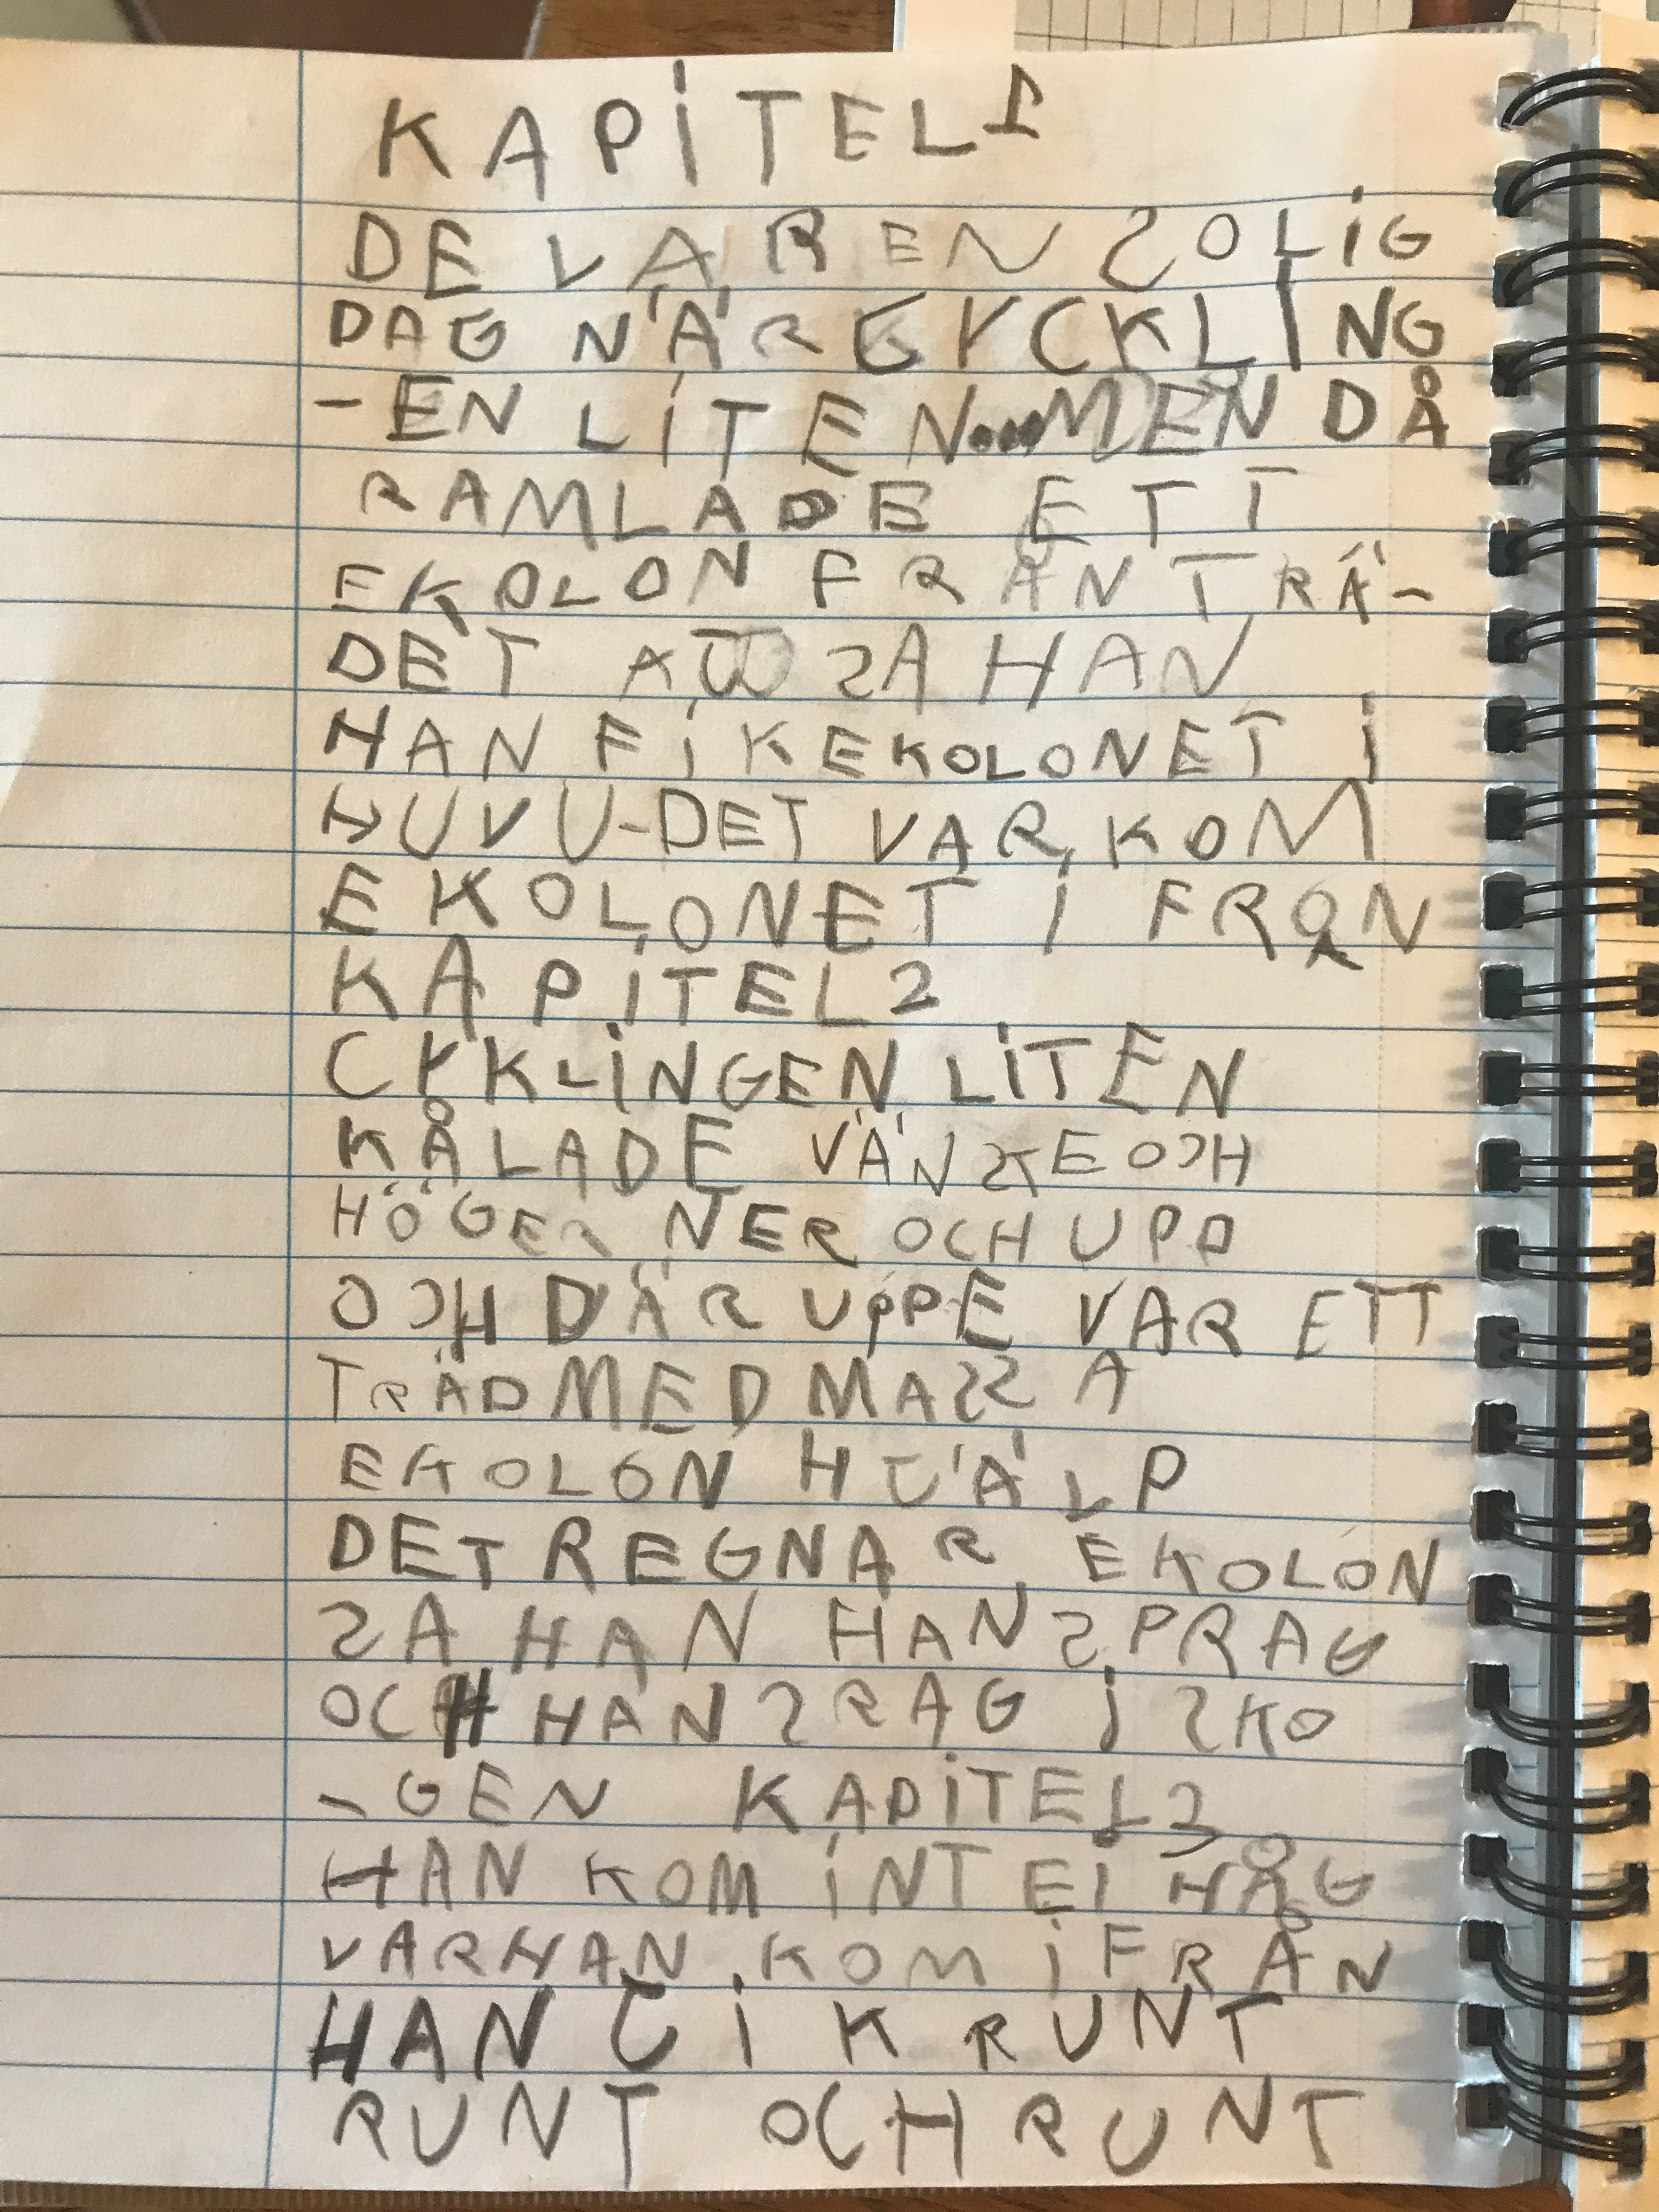 KAPITEL 1
DE VAR EN SOLIG
DAG NÄR CYCKLING
-EN LITEN...MEN DÅ
RAMLADE ETT
EKOLON FRÅN TRÄ-
DET AJ SA HAN
HAN FIK EKOLONET I
HUVU-DET VAR KOM
EKOLONET I FRÅN
KAPITEL 2
CYKLINGEN LITEN
KÅLADE VÄNSTE OCH
HÖGER NER OCH UPP
OCH DÄR UPPE VAR ETT
TRÄD MED MASSA
EKOLON HJÄLP
DET REGNAR EKOLON
SA HAN HAN SPRAG
OCH HAN SRAG I SKO
-GEN KAPITEL 3
HAN KOM INTE I HÅG
VAR HAN KOM IFRÅN
HAN JIK RUNT
RUNT OCH RUNT